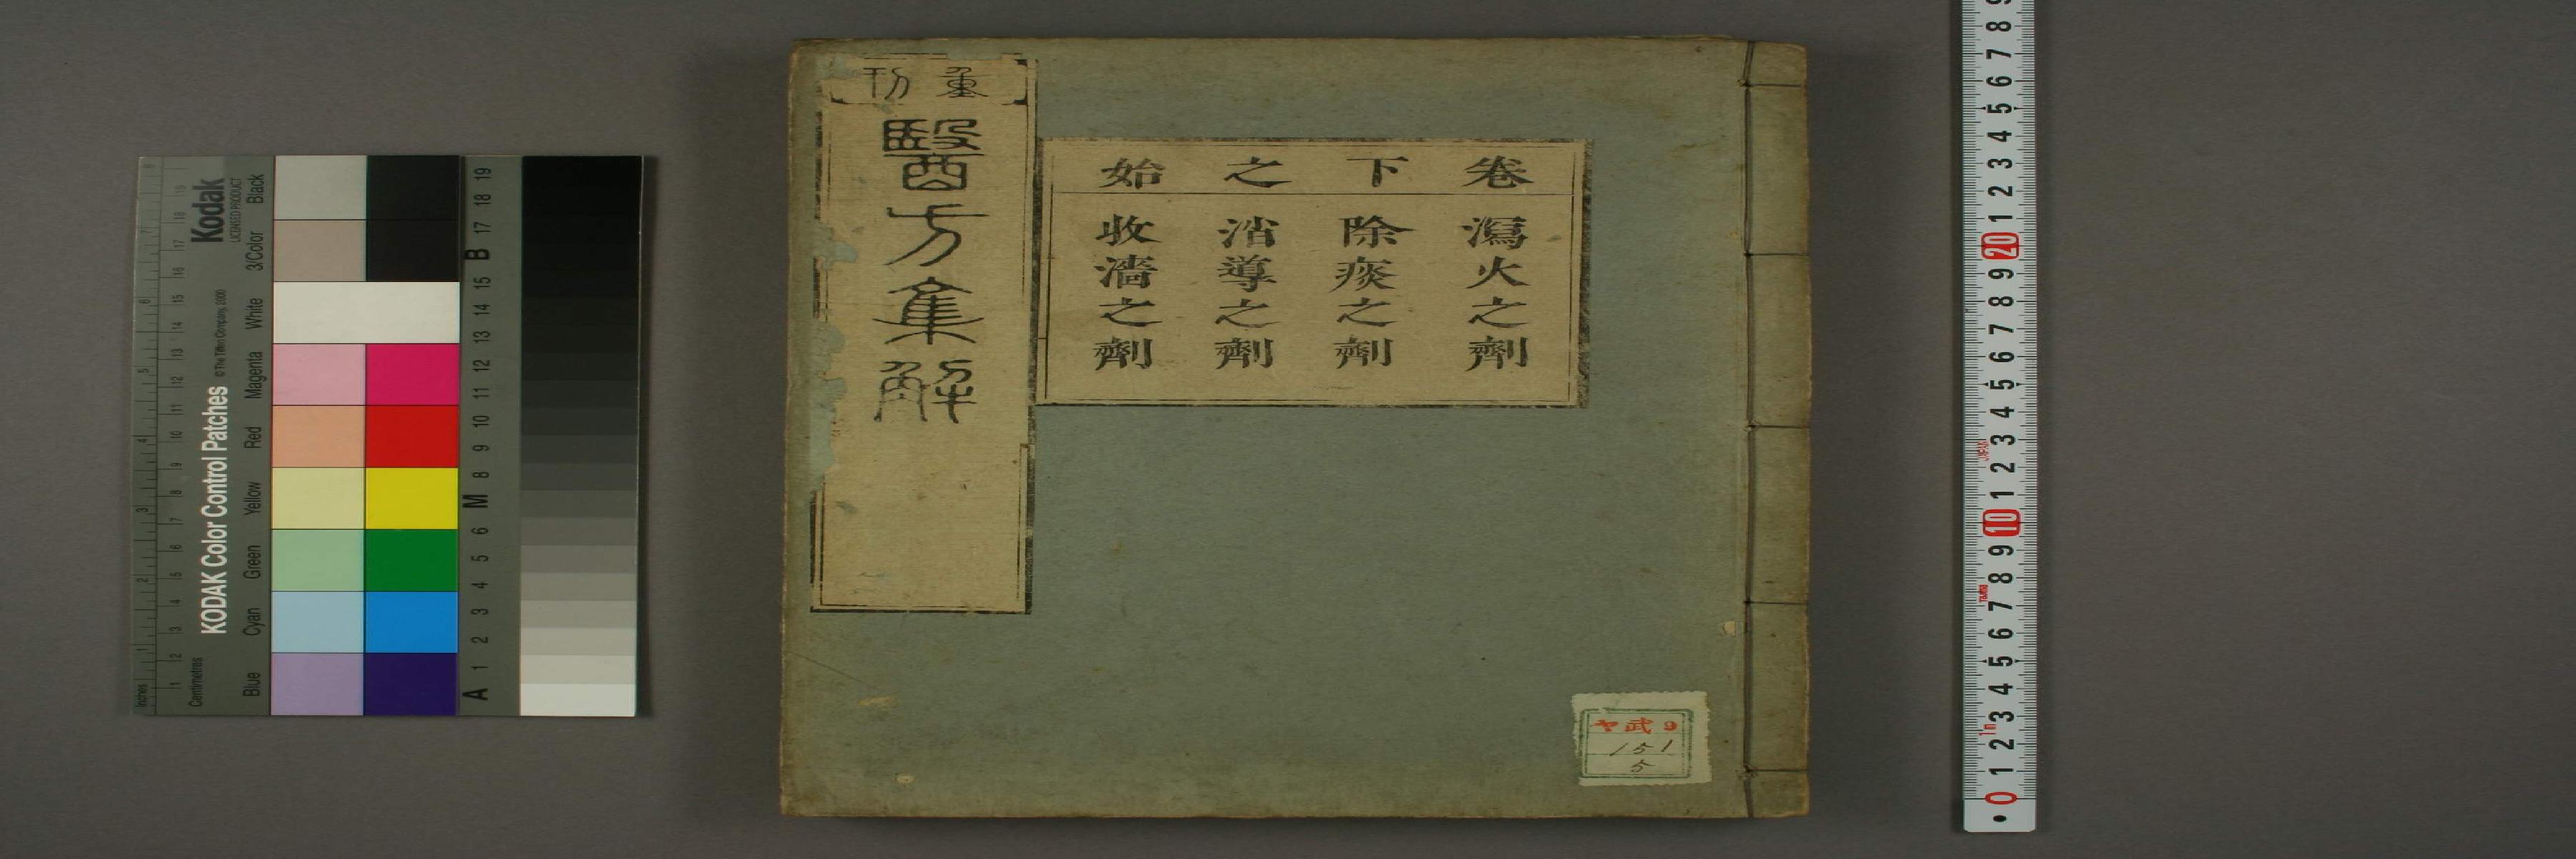 重刊
醫方集解
卷下之始
瀉火之劑
除痰之劑
消導之劑
收濇之劑
ヤ武9
151
5
KODAK Color Control Patches
Kodak
LICENSED PRODUCT
© The Tiffen Company, 2000
Inches
Centimetres
Blue
Cyan
Green
Yellow
Red
Magenta
White
3/Color
Black
A 1 2 3 4 5 6 M 8 9 10 11 12 13 14 15 B 17 18 19
0 1 2 3 4 5 6 7 8 9 10 1 2 3 4 5 6 7 8 9 20 1 2 3 4 5 6 7 8 9